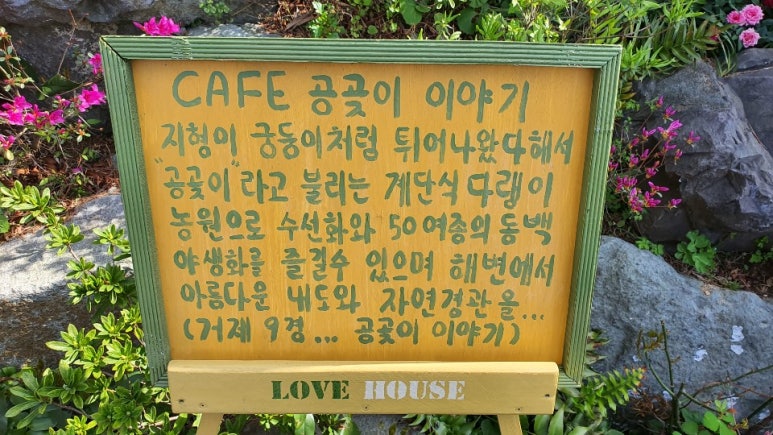 CAFE 공곶이 이야기
지형이 궁둥이처럼 튀어나왔다해서
"공곶이"라고 불리는 계단식 다랭이
농원으로 수선화와 50여종의 동백
야생화를 즐길수 있으며 해변에서
아름다운 내도와 자연경관을...
(거제 9경... 공곶이 이야기)
LOVE HOUSE